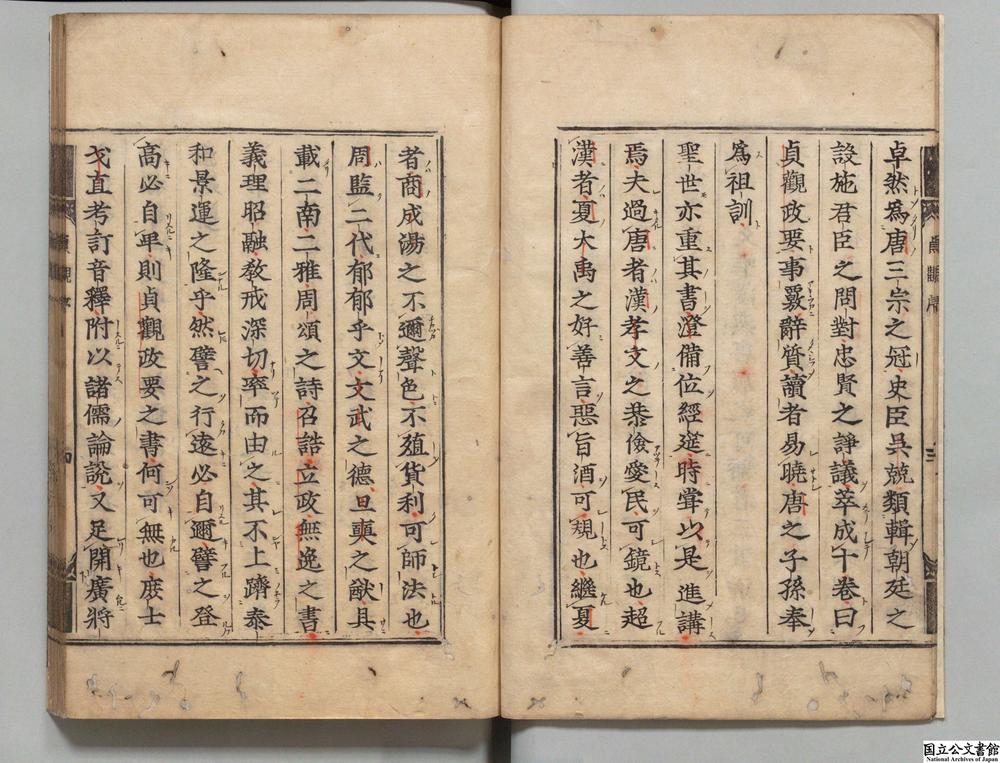 卓然爲唐三宗之冠史臣吳兢類輯朝廷之
設施君臣之問對忠賢之諍議萃成十卷曰
貞觀政要事覈辭質讀者易曉唐之子孫奉
爲祖訓
聖世亦重其書澄備位經筵時甞以是進講
焉夫過唐者漢孝文之恭儉愛民可鏡也超
漢者夏大禹之好善言惡旨酒可規也繼夏
者商成湯之不邇聲色不殖貨利可師法也
周監二代郁郁乎文文武之德旦奭之猷具
載二南二雅周頌之詩召誥立政無逸之書
義理昭融敎戒深切率而由之其不上躋泰
和景運之隆乎然譬之行遠必自邇譬之登
高必自卑則貞觀政要之書何可無也庻士
戈直考訂音釋附以諸儒論說又足開廣將
国立公文書館
National Archives of Japan